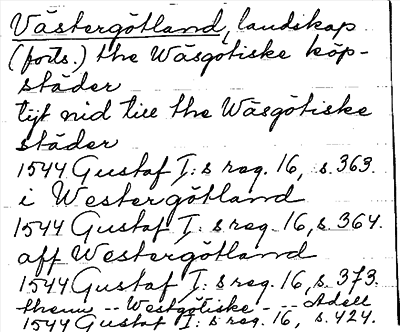 Västergötland, landskap
(forts.) the Wäsgötiske köp-
städer
tijt nid till the Wäsgötiske
städer
1544 Gustaf I:s reg. 16, s. 363.
i Westergötland
1544 Gustaf I:s reg. 16, s. 364.
aff Westergötland
1544 Gustaf I:s reg. 16, s. 373.
thenn -- Westgötiske -- Adell
1544 Gustaf I:s reg. 16, s. 424.